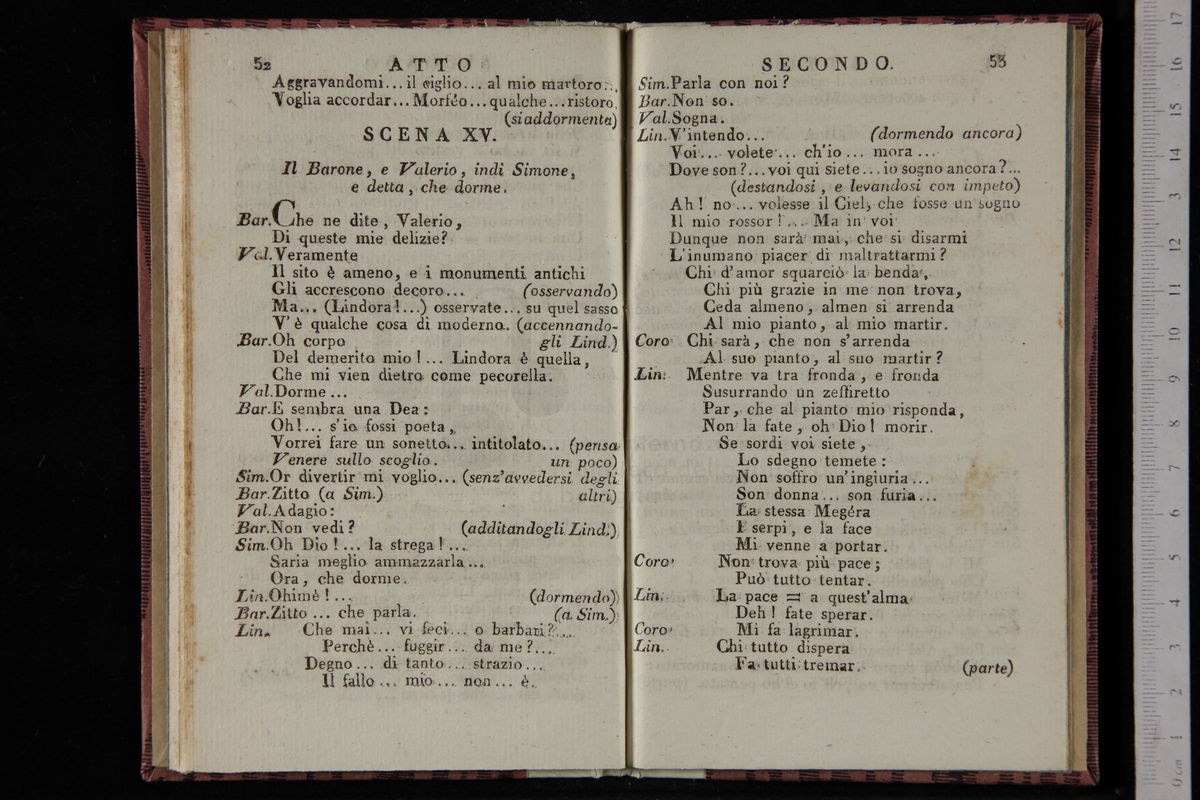 52 ATTO
Aggravandomi... il ciglio... al mio martoro...
Voglia accordar... Morféo... qualche... ristoro.
(si addormenta)
SCENA XV.
Il Barone, e Valerio, indi Simone,
e detta, che dorme.
Bar. Che ne dite, Valerio,
Di queste mie delizie?
Val. Veramente
Il sito è ameno, e i monumenti antichi
Gli accrescono decoro... (osservando)
Ma... (Lindora!...) osservate... su quel sasso
V' è qualche cosa di moderno. (accennando-
Bar. Oh corpo gli Lind.)
Del demerito mio!... Lindora è quella,
Che mi vien dietro come pecorella.
Val. Dorme...
Bar. E sembra una Dea:
Oh!... s'io fossi poeta,
Vorrei fare un sonetto... intitolato... (pensa
Venere sullo scoglio. un poco)
Sim. Or divertir mi voglio... (senz'avvedersi degli
Bar. Zitto (a Sim.) altri)
Val. Adagio:
Bar. Non vedi? (additandogli Lind.)
Sim. Oh Dio!... la strega!...
Saria meglio ammazzarla...
Ora, che dorme.
Lin. Ohimè!... (dormendo)
Bar. Zitto... che parla. (a Sim.)
Lin. Che mai... vi feci... o barbari?...
Perchè... fuggir... da me?...
Degno... di tanto... strazio...
Il fallo... mio... non... è.
SECONDO. 53
Sim. Parla con noi?
Bar. Non so.
Val. Sogna.
Lin. V'intendo... (dormendo ancora)
Voi... volete... ch'io... mora...
Dove son?... voi qui siete... io sogno ancora?...
(destandosi, e levandosi con impeto)
Ah! no... volesse il Ciel, che fosse un sogno
Il mio rossor!... Ma in voi
Dunque non sarà mai, che si disarmi
L'inumano piacer di maltrattarmi?
Chi d'amor squarciò la benda,
Chi più grazie in me non trova,
Ceda almeno, almen si arrenda
Al mio pianto, al mio martir.
Coro Chi sarà, che non s'arrenda
Al suo pianto, al suo martir?
Lin. Mentre va tra fronda, e fronda
Susurrando un zeffiretto
Par, che al pianto mio risponda,
Non la fate, oh Dio! morir.
Se sordi voi siete,
Lo sdegno temete:
Non soffro un'ingiuria...
Son donna... son furia...
La stessa Megéra
I serpi, e la face
Mi venne a portar.
Coro Non trova più pace;
Può tutto tentar.
Lin. La pace = a quest'alma
Deh! fate sperar.
Coro Mi fa lagrimar.
Lin. Chi tutto dispera
Fa tutti tremar. (parte)